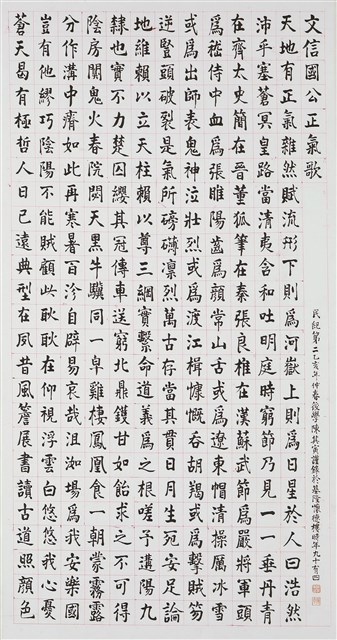 文信國公正氣歌
天地有正氣雜然賦流形下則為河嶽上則為日星於人曰浩然
沛乎塞蒼冥皇路當清夷含和吐明庭時窮節乃見一一垂丹青
在齊太史簡在晉董狐筆在秦張良椎在漢蘇武節為嚴將軍頭
為嵇侍中血為張睢陽齒為顏常山舌或為遼東帽清操厲冰雪
或為出師表鬼神泣壯烈或為渡江楫慷慨吞胡羯或為擊賊笏
逆豎頭破裂是氣所磅礴凜烈萬古存當其貫日月生死安足論
地維賴以立天柱賴以尊三綱實繫命道義為之根嗟予遘陽九
隸也實不力楚囚纓其冠傳車送窮北鼎鑊甘如飴求之不可得
陰房闃鬼火春院閟天黑牛驥同一皁雞棲鳳凰食一朝蒙霧露
分作溝中瘠如此再寒暑百沴自辟易哀哉沮洳場為我安樂國
豈有他繆巧陰陽不能賊顧此耿耿在仰視浮雲白悠悠我心憂
蒼天曷有極哲人日已遠典型在夙昔風簷展書讀古道照顏色
民紀第二乙亥年仲春後學陳其寅謹錄於基隆懷德樓時年九十有四